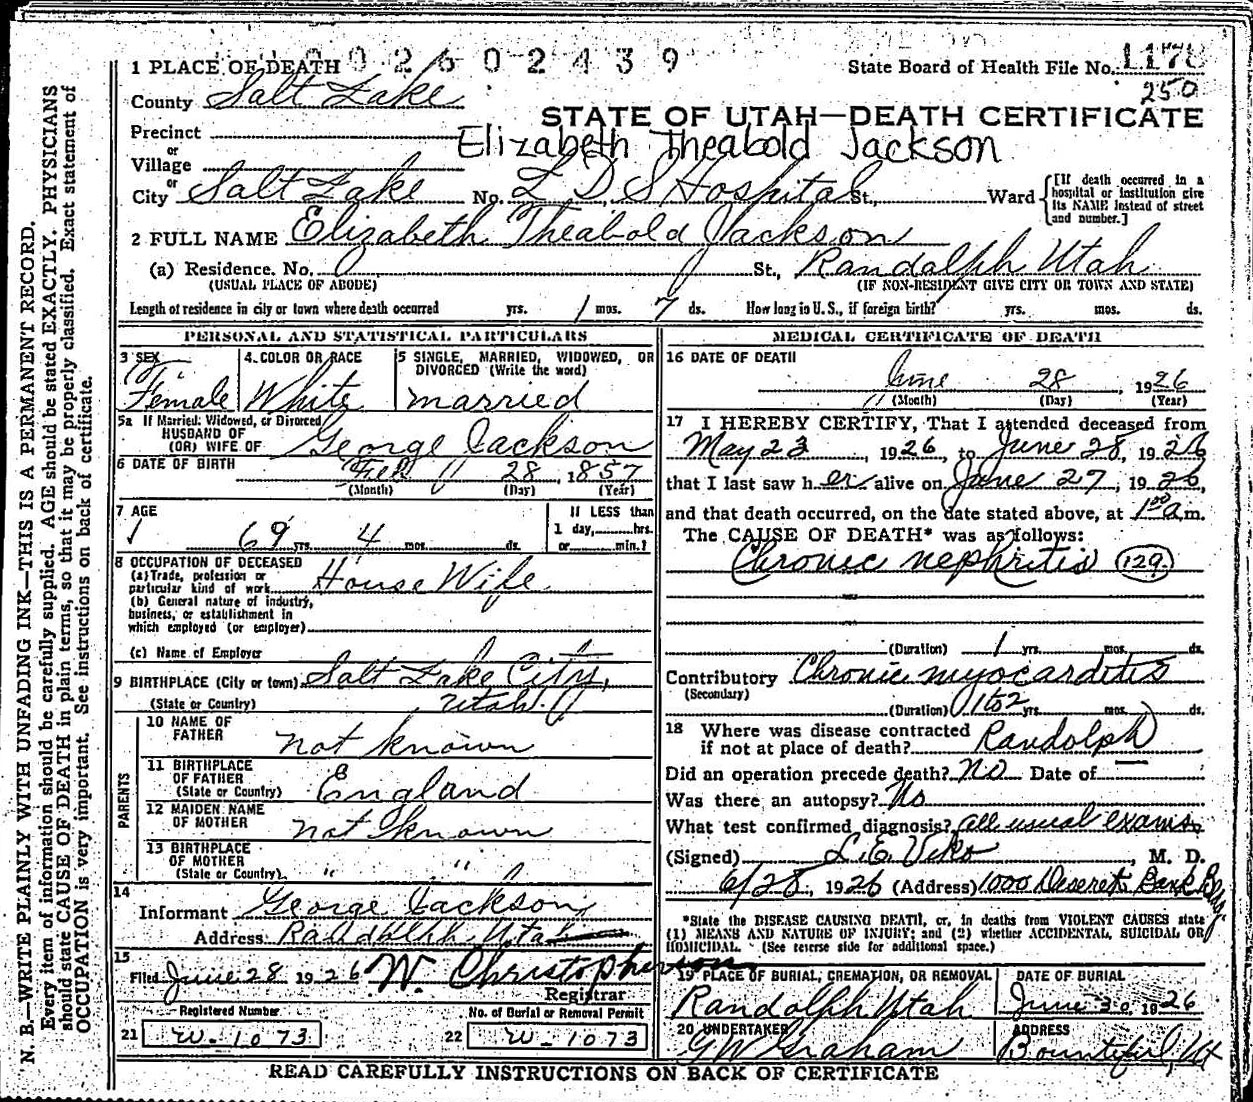 002602439
1 PLACE OF DEATH
State Board of Health File No. 1178
250
County Salt Lake
STATE OF UTAH—DEATH CERTIFICATE
Precinct
Elizabeth Theabold Jackson
or
Village
or
City Salt Lake No. L D S Hospital St., Ward
[If death occurred in a hospital or institution give its NAME instead of street and number.]
2 FULL NAME Elizabeth Theabold Jackson
(a) Residence. No. St., Randolph Utah
(USUAL PLACE OF ABODE) (IF NON-RESIDENT GIVE CITY OR TOWN AND STATE)
Length of residence in city or town where death occurred yrs. 1 mos. 7 ds. How long in U. S., if foreign birth? yrs. mos. ds.
PERSONAL AND STATISTICAL PARTICULARS
3 SEX 4 COLOR OR RACE 5 SINGLE, MARRIED, WIDOWED, OR
DIVORCED (Write the word)
Female White married
5a If Married, Widowed, or Divorced
HUSBAND OF
(OR) WIFE OF George Jackson
6 DATE OF BIRTH Feb 28, 1857
(Month) (Day) (Year)
7 AGE If LESS than
69 yrs. 4 mos. ds. 1 day, hrs.
or min.?
8 OCCUPATION OF DECEASED
(a) Trade, profession or
particular kind of work House Wife
(b) General nature of industry,
business, or establishment in
which employed (or employer)
(c) Name of Employer
9 BIRTHPLACE (City or town) Salt Lake City,
(State or Country) Utah.
PARENTS
10 NAME OF
FATHER not known
11 BIRTHPLACE
OF FATHER
(State or Country) England
12 MAIDEN NAME
OF MOTHER not known
13 BIRTHPLACE
OF MOTHER
(State or Country) " "
14
Informant George Jackson
Address Randolph Utah
15
Filed June 28 1926 W. Christopherson
Registrar
Registered Number No. of Burial or Removal Permit
21 W-1073 22 W-1073
MEDICAL CERTIFICATE OF DEATH
16 DATE OF DEATH
June 28, 1926
(Month) (Day) (Year)
17 I HEREBY CERTIFY, That I attended deceased from
May 23, 1926, to June 28, 1926
that I last saw her alive on June 27, 1926,
and that death occurred, on the date stated above, at 1 00 a m.
The CAUSE OF DEATH* was as follows:
Chronic nephritis 129
(Duration) 1 yrs. mos. ds.
Contributory Chronic myocarditis
(Secondary)
(Duration) 1 to 2 yrs. mos. ds.
18 Where was disease contracted
if not at place of death? Randolph
Did an operation precede death? No Date of
Was there an autopsy? No
What test confirmed diagnosis? all usual exams.
(Signed) L. E. Viko, M. D.
6/28, 1926 (Address) 1000 Deseret Bank Bldg
*State the DISEASE CAUSING DEATH, or, in deaths from VIOLENT CAUSES state
(1) MEANS AND NATURE OF INJURY; and (2) whether ACCIDENTAL, SUICIDAL OR
HOMICIDAL. (See reverse side for additional space.)
19 PLACE OF BURIAL, CREMATION, OR REMOVAL DATE OF BURIAL
Randolph Utah June 30, 1926
20 UNDERTAKER ADDRESS
G W Graham Bountiful, Ut
READ CAREFULLY INSTRUCTIONS ON BACK OF CERTIFICATE
N. B.—WRITE PLAINLY WITH UNFADING INK—THIS IS A PERMANENT RECORD.
Every item of information should be carefully supplied. AGE should be stated EXACTLY. PHYSICIANS
should state CAUSE OF DEATH in plain terms, so that it may be properly classified. Exact statement of
OCCUPATION is very important. See instructions on back of certificate.